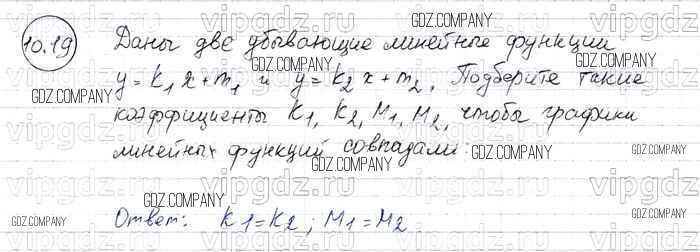 10.19 Даны две убывающие линейные функции
y = k₁x + m₁ и y = k₂x + m₂. Подберите такие
коэффициенты k₁, k₂, m₁, m₂, чтобы графики
линейных функций совпадали:
Ответ: k1 = k2; m1 = m2.
GDZ.COMPANY
vipgdz.ru